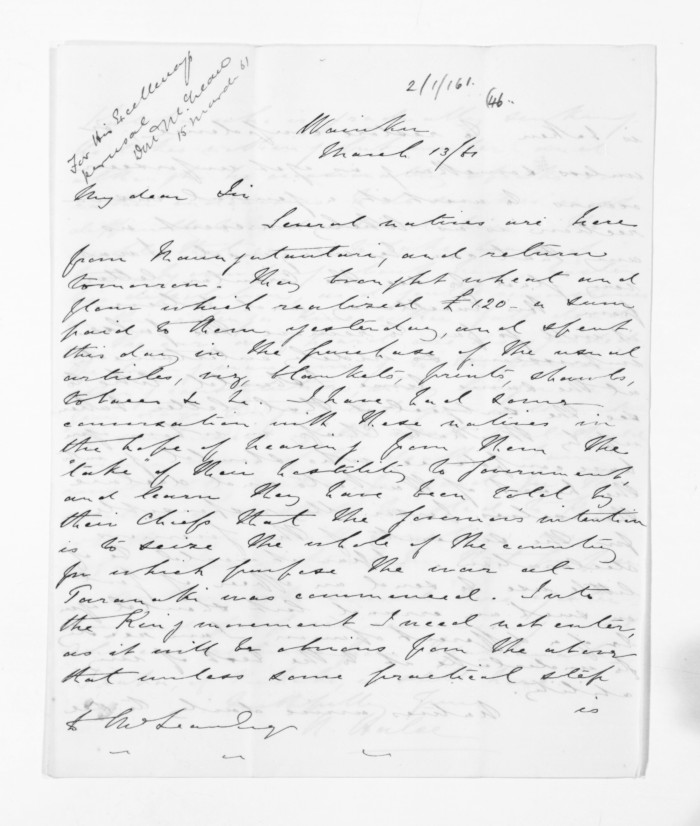 For His Excellency's
perusal
Don. McLean
15 March 61
2/1/161.
46.
Waiuku
March 13/61
My dear Sir
Several natives are here
from Maungatautari, and return
tomorrow. They brought wheat and
flour which realized £120 - a sum
paid to them yesterday, and spent
this day in the purchase of the usual
articles, viz, blankets, prints, shawls,
tobacco &c. I have had some
conversation with these natives in
the hope of hearing from them the
"take" of their hostility to Government,
and learn they have been told by
their Chiefs that the Governor's intention
is to seize the whole of the country
for which purpose the war at
Taranaki was commenced. Into
the King movement I need not enter,
as it will be obvious from the above
that unless some practical step
is
D McLean Esq